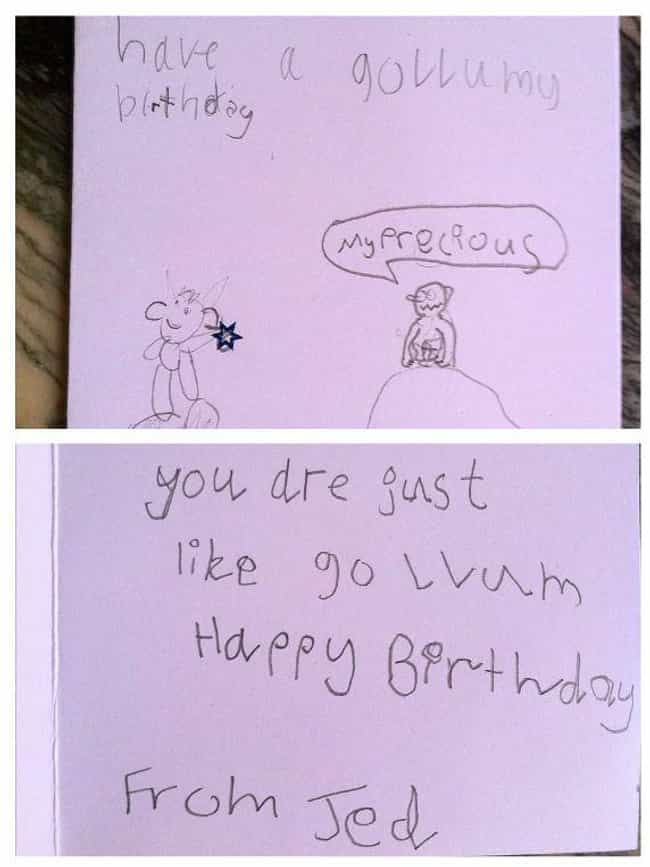 have a gollumy
birthday
My Precious
you are just
like gollum
Happy Birthday
From Jed